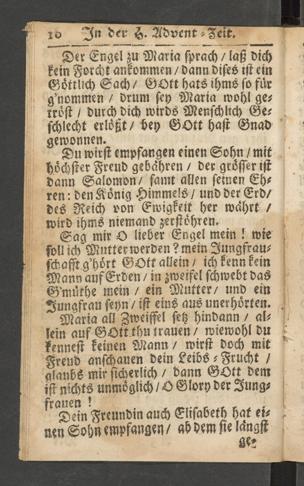 10 In der H. Advent-Zeit.
Der Engel zu Maria sprach / laß dich
kein Forcht ankommen / dann dises ist ein
Göttlich Sach / GOtt hats ihms so für
g'nommen / drum sey Maria wohl ge-
tröst / durch dich wirds Menschlich Ge-
schlecht erlößt / bey GOtt hast Gnad
gewonnen.
Du wirst empfangen einen Sohn / mit
höchster Freud gebähren / der grösser ist
dann Salomon / samt allen seinen Eh-
ren: den König Himmels / und der Erd /
des Reich von Ewigkeit her währt /
wird ihms niemand zerstöhren.
Sag mir O lieber Engel mein! wie
soll ich Mutter werden? mein Jungfrau-
schafft g'hört GOtt allein / ich kenn kein
Mann auf Erden / in zweifel schwebt das
G'müthe mein / ein Mutter / und ein
Jungfrau seyn / ist eins aus unerhörten.
Maria all Zweiffel setz hindann / al-
lein auf GOtt thu trauen / wiewohl du
kennest keinen Mann / wirst doch mit
Freud anschauen dein Leibs-Frucht /
glaubs mir sicherlich / dann GOtt dem
ist nichts unmöglich / O Glory der Jung-
frauen!
Dein Freundin auch Elisabeth hat ei-
nen Sohn empfangen / ab dem sie längst
ge-